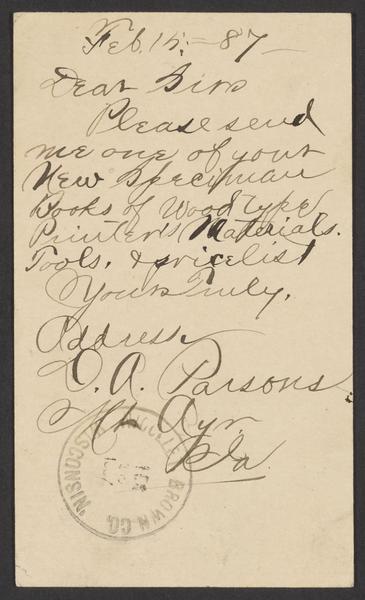 Feb. 15. - 87 -
Dear Sirs
Please send
me one of your
New Speciman
Books of Wood type
Printer's Materials.
Tools, & price list
Yours Truly,
Address
D. A. Parsons
Mt Ayr.
Ia.
BROWN CO.
WISCONSIN